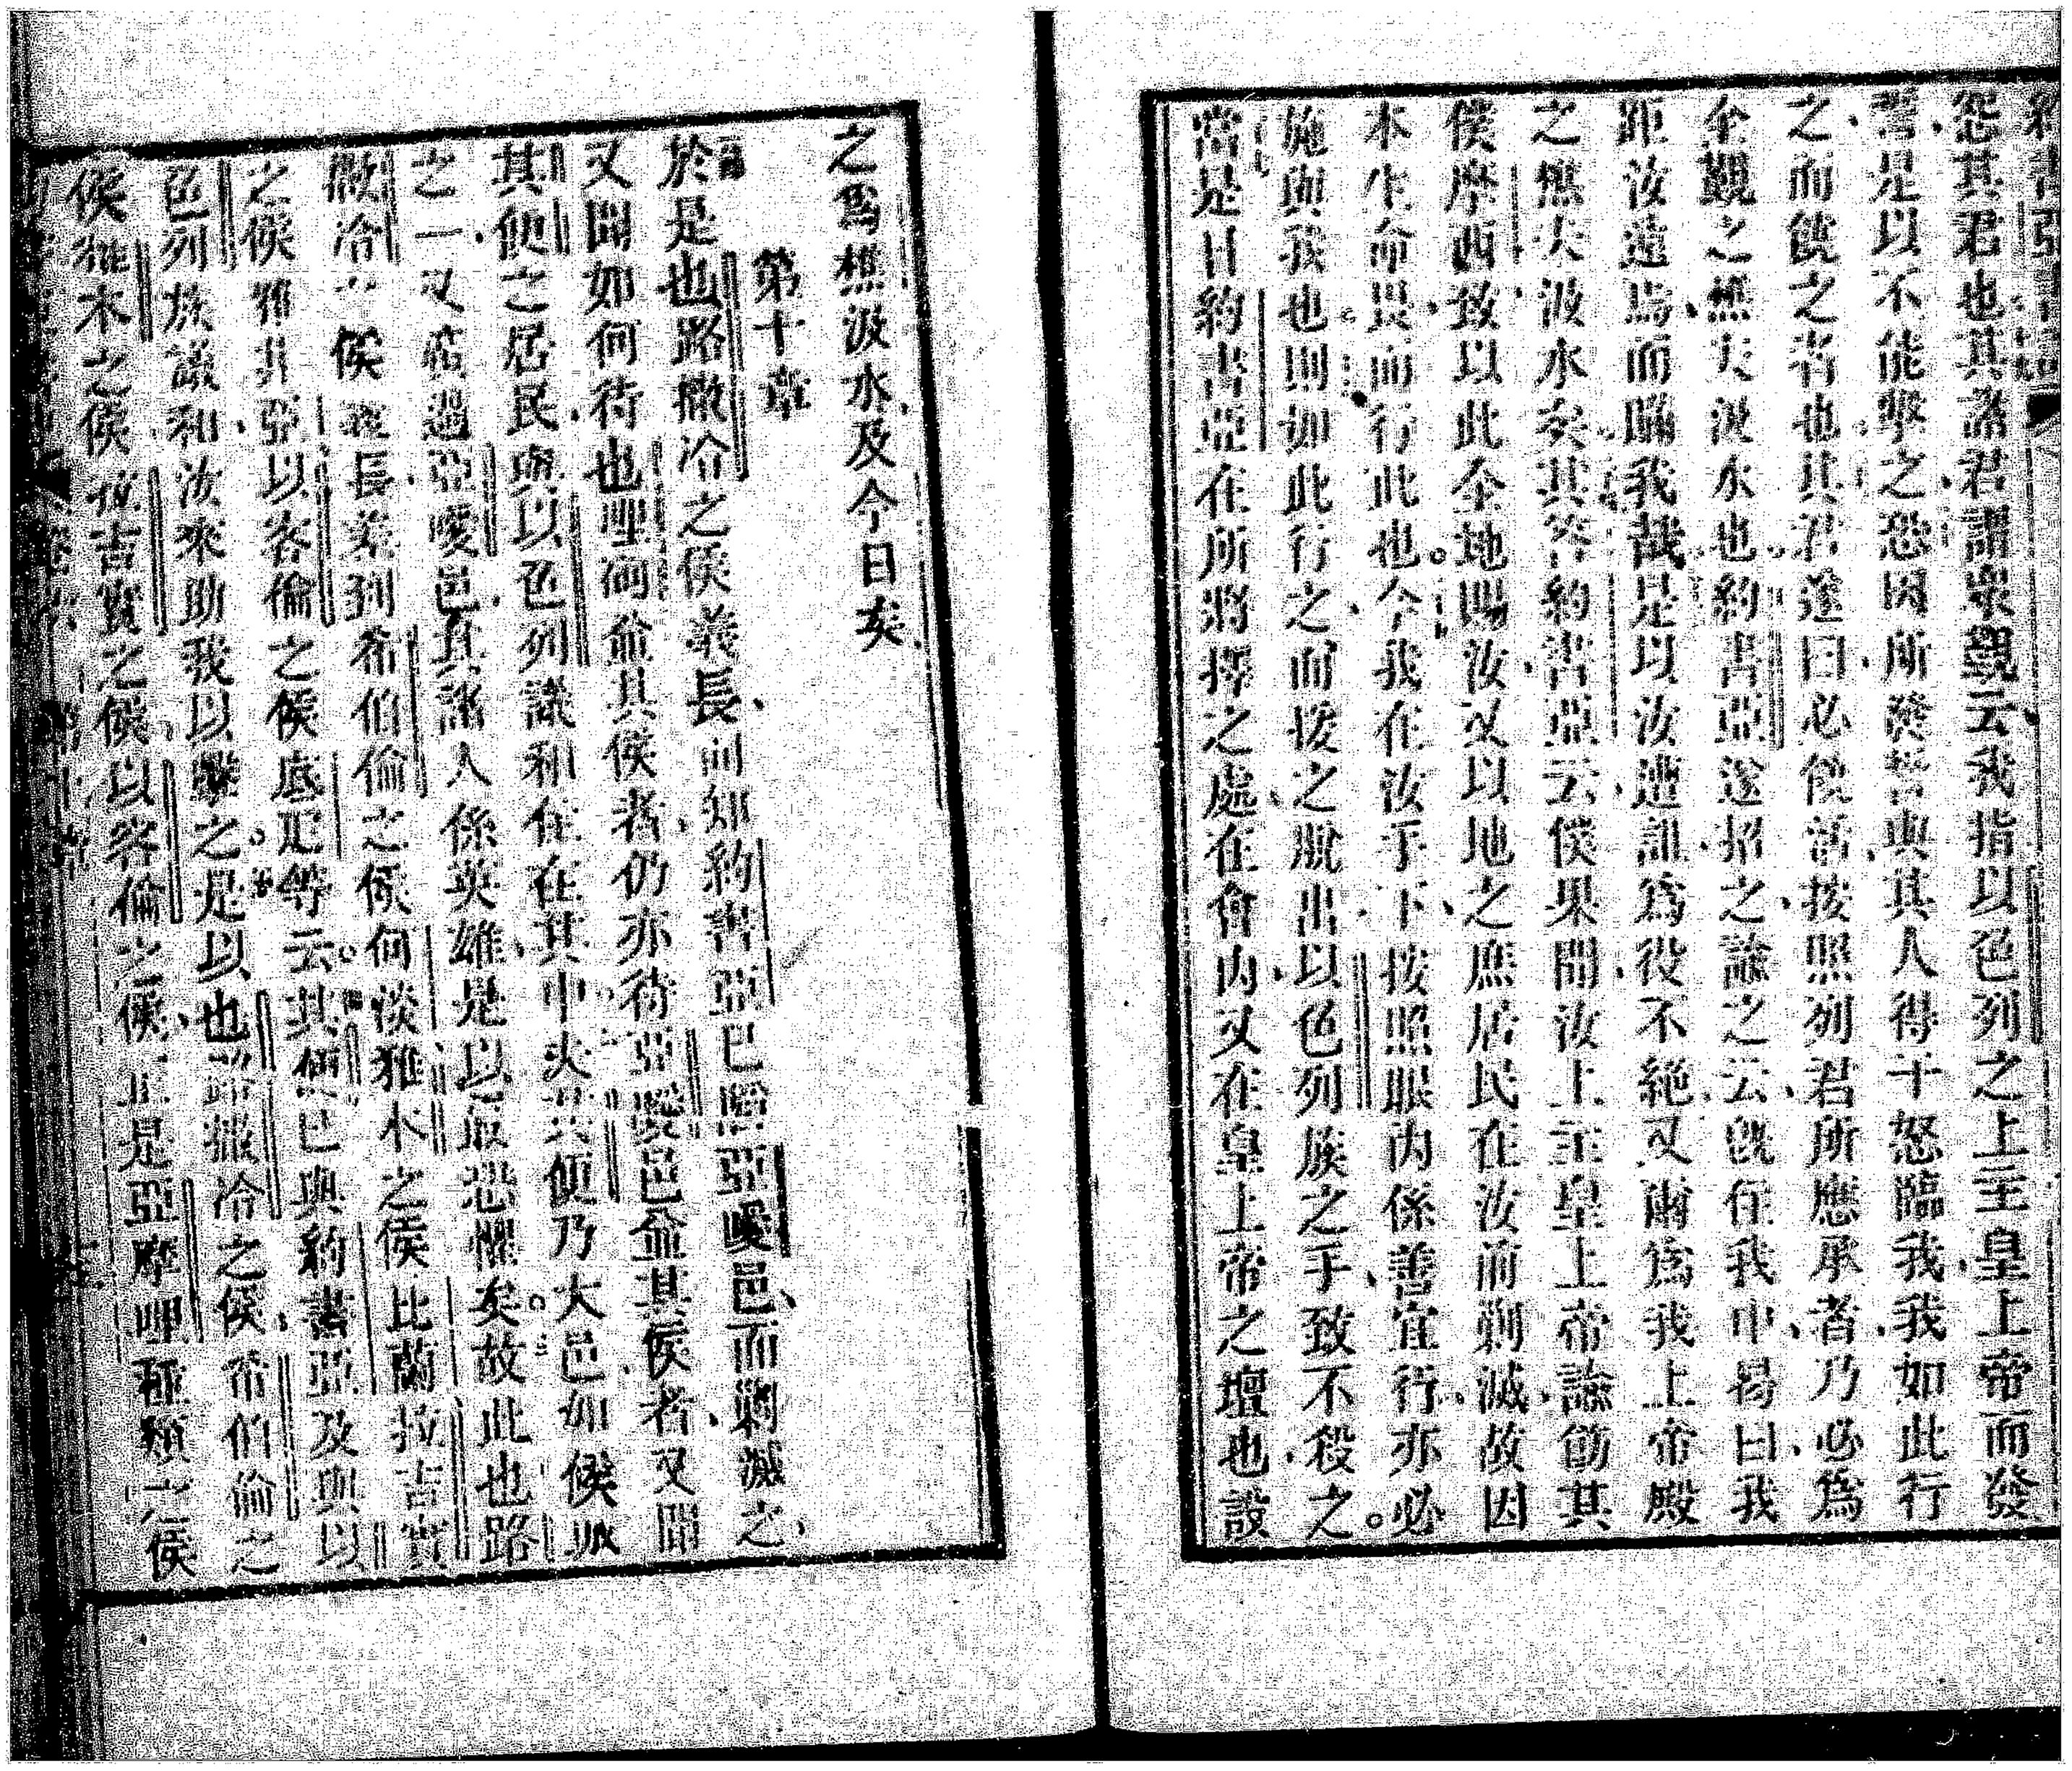 怨其君也其諸君謂眾觀云我指以色列之上主皇上帝而發
誓是以不能擊之恐因所發誓與其人得干怒臨我我如此行
之而饒之者也其君遂曰必饒活按照列君所應承者乃必為
全觀之樵夫汲水也約書亞遂招之諭之云既在我中曷曰我
距汝遠焉而瞞我哉是以汝遭詛為役不絕又爾為我上帝殿
之樵夫汲水矣其答約書亞云僕果聞汝上主皇上帝諭飭其
僕摩西致以此全地賜汝又以地之庶居民在汝前剿滅故因
本生命畏而行此也今我在汝手下按照眼內係善宜行亦必
施與我也則如此行之而拨之脫出以色列族之手致不殺之
當是日約書亞在所將擇之處在會內又在皇上帝之壇也設
之為樵汲水及今日矣
第十章
於是也路撒冷之侯義長聞知約書亞已勝亞噯邑而剿滅之
又聞如何待也哩𠴱兼其侯者仍亦待亞噯邑兼其侯者又聞
其便之居民與以色列議和住在其中夫其便乃大邑如侯城
之一又超過亞噯邑其諸人係英雄是以最恐懼矣故此也路
撒冷之侯義長差到希伯倫之侯何淡雅木之侯比蘭拉吉實
之侯雅非亞以客倫之侯底疋等云其便已與約書亞及與以
色列族議和汝來助我以擊之是以也路撒冷之侯希伯倫之
侯雅木之侯拉吉實之侯以客倫之侯正是亞摩哩種類之侯